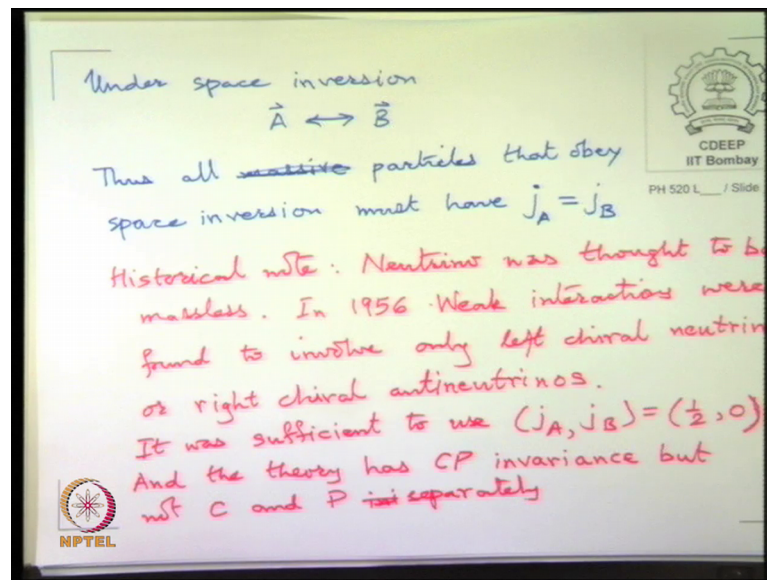 Under space inversion
A⃗ ↔ B⃗
Thus all massive particles that obey
space inversion must have j_A = j_B
Historical note : Neutrino was thought to be
massless. In 1956 Weak interactions were
found to involve only left chiral neutrin
or right chiral antineutrinos.
It was sufficient to use (j_A, j_B) = (½, 0)
And the theory has CP invariance but
not C and P separately
CDEEP
IIT Bombay
PH 520 L___ / Slide
NPTEL